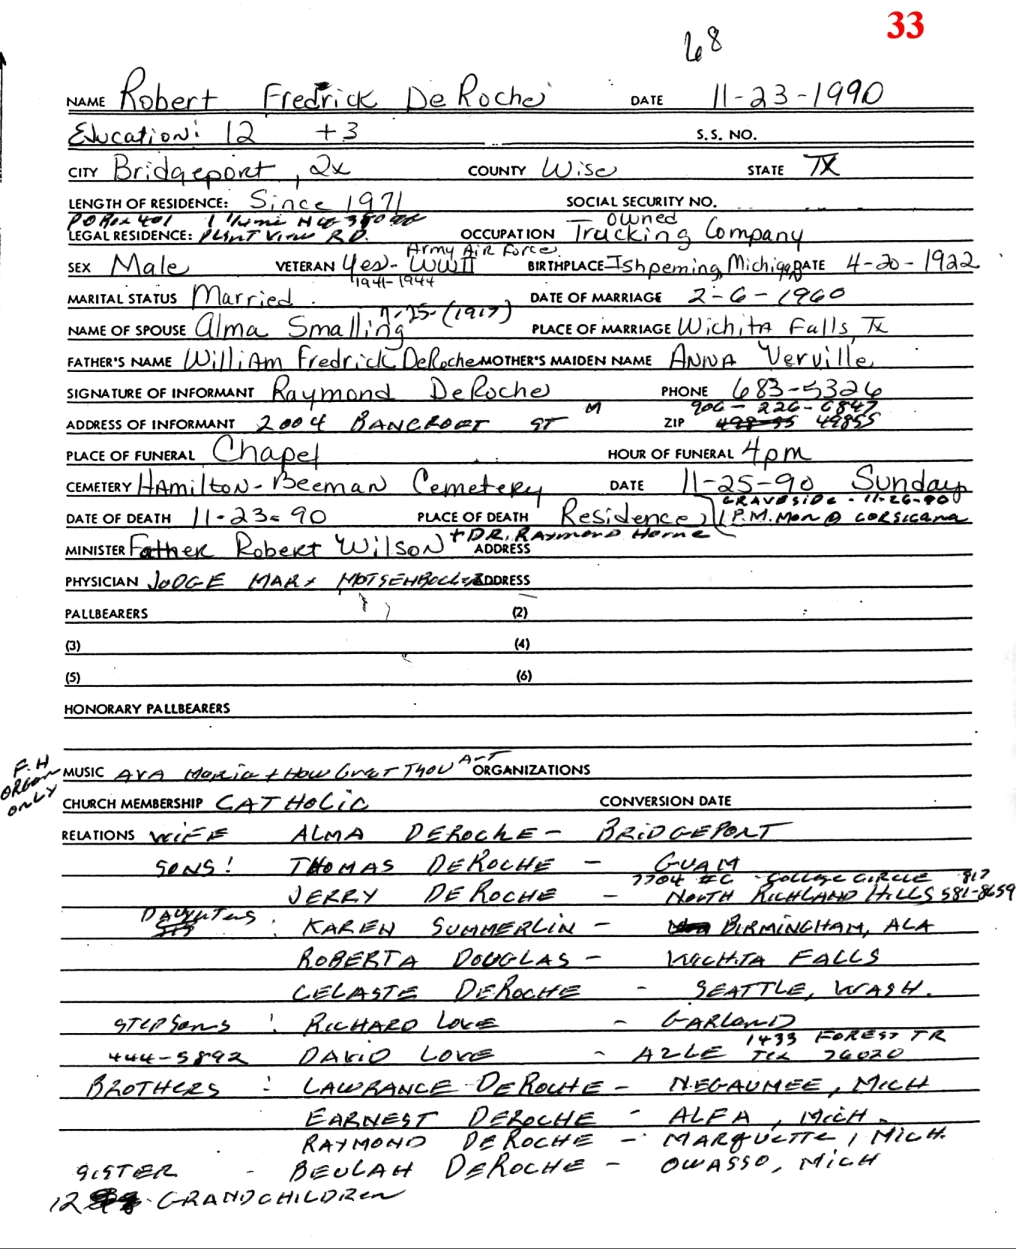 33
68
NAME Robert Fredrick DeRoche DATE 11-23-1990
Education: 12 +3 S.S. NO.
CITY Bridgeport, COUNTY Wise STATE TX
LENGTH OF RESIDENCE: Since 1971 SOCIAL SECURITY NO.
PO Box 401
LEGAL RESIDENCE: View RD. OCCUPATION Owned Trucking Company
SEX Male VETERAN Yes- WWII Army Air Force 1941-1944 BIRTHPLACE Ishpeming, Michigan DATE 4-20-1922
MARITAL STATUS Married DATE OF MARRIAGE 2-6-1960
NAME OF SPOUSE Alma Smalling -25-(1917) PLACE OF MARRIAGE Wichita Falls, Tx
FATHER'S NAME William Fredrick DeRoche MOTHER'S MAIDEN NAME ANNA Verville
SIGNATURE OF INFORMANT Raymond DeRoche PHONE 683-5326
906-226-6847
ADDRESS OF INFORMANT 2004 BANCROFT ST M ZIP 49855
PLACE OF FUNERAL Chapel HOUR OF FUNERAL 4pm
CEMETERY Hamilton-Beeman Cemetery DATE 11-25-90 Sunday
GRAVESIDE - 11-26-90
DATE OF DEATH 11-23-90 PLACE OF DEATH Residence 1 P.M. MON @ CORSICANA
MINISTER Father Robert Wilson + DR. Raymond Horne ADDRESS
PHYSICIAN JUDGE MARX ADDRESS
PALLBEARERS (2)
(3) (4)
(5) (6)
HONORARY PALLBEARERS
F.H ORGAN ONLY
MUSIC AVA Maria + How Great Thou ArT ORGANIZATIONS
CHURCH MEMBERSHIP CATHOLIC CONVERSION DATE
RELATIONS WIFE ALMA DEROCHE - BRIDGEPORT
SONS: THOMAS DEROCHE - GUAM
7704 #C COLLEGE CIRCLE 817
JERRY DEROCHE - NORTH RICHLAND HILLS 581-8659
Daughters: KAREN SUMMERLIN - BIRMINGHAM, ALA
ROBERTA DOUGLAS - WICHITA FALLS
CELASTE DEROCHE - SEATTLE, WASH.
STEPSONS: RICHARD LOVE - GARLAND
1433 FOREST TR
444-5892 DAVID LOVE - AZLE TEX 76020
BROTHERS: LAWRANCE DEROCHE - NEGAUMEE, MICH
EARNEST DEROCHE - ALFA, MICH.
RAYMOND DEROCHE - MARQUETTE, MICH.
SISTER - BEULAH DEROCHE - OWASSO, MICH
12 GRANDCHILDREN